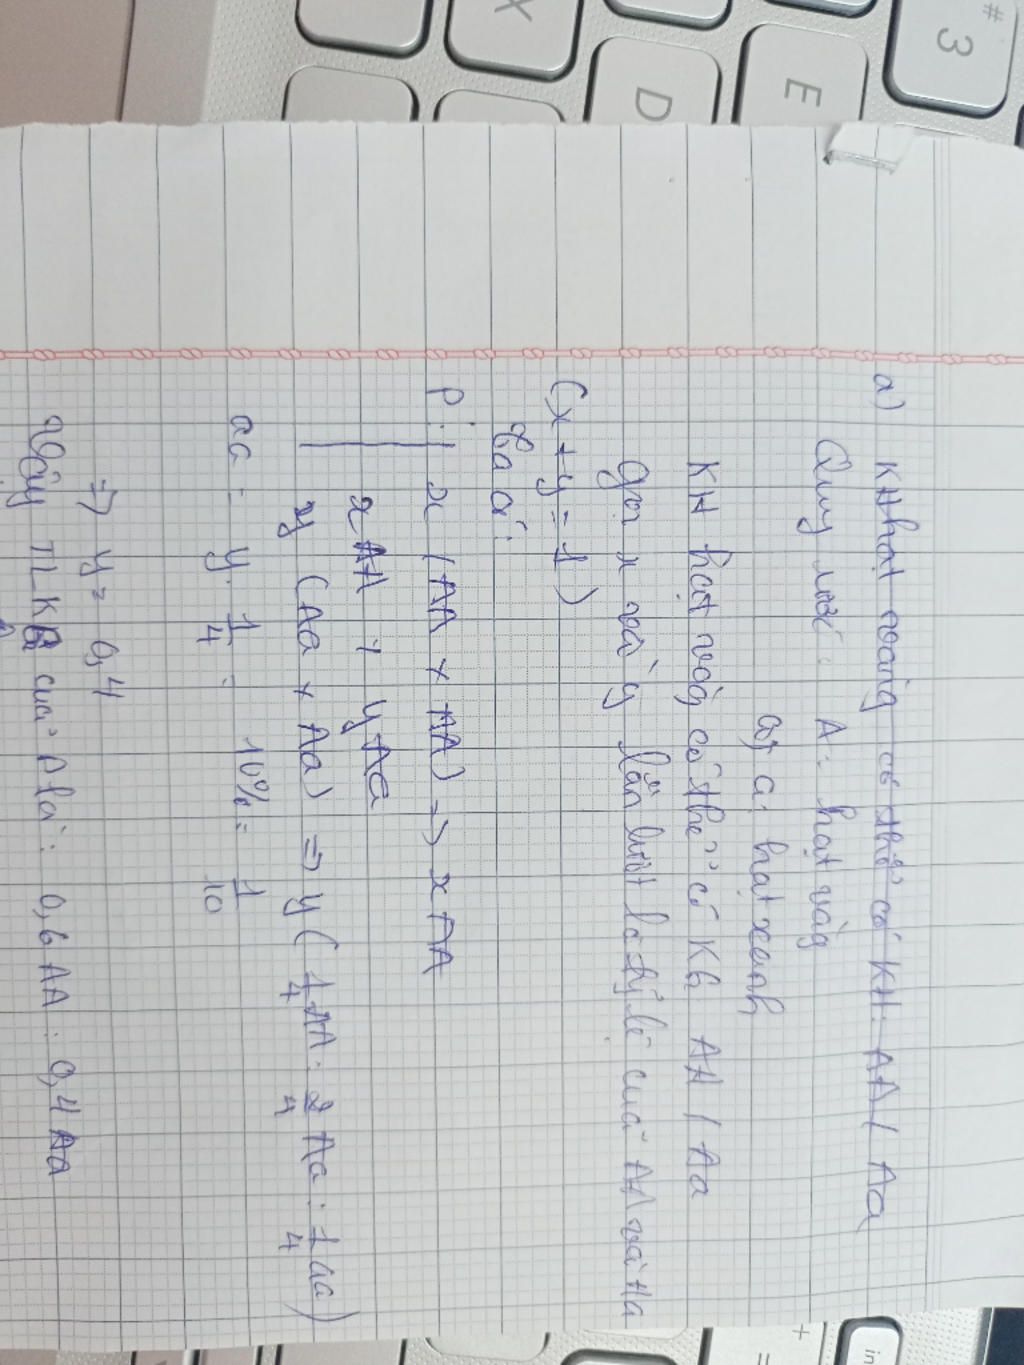 # 3
E
D
X
a) KH hạt vàng có thể có KH: AA / Aa
Quy ước: A: hạt vàg
a: hạt xanh
KH hạt vàg có thể có KG AA / Aa
gọi x và y lần lượt là tỷ lệ của AA và Aa
(x + y = 1)
Ta có:
P: x (AA x AA) => x AA
x AA : y Aa
y (Aa x Aa) => y ( 1/4 AA : 2/4 Aa : 1/4 aa )
aa = y . 1/4 = 10% = 1/10
=> y = 0,4
Vậy TL KG của P là: 0,6 AA : 0,4 Aa
+
=
in